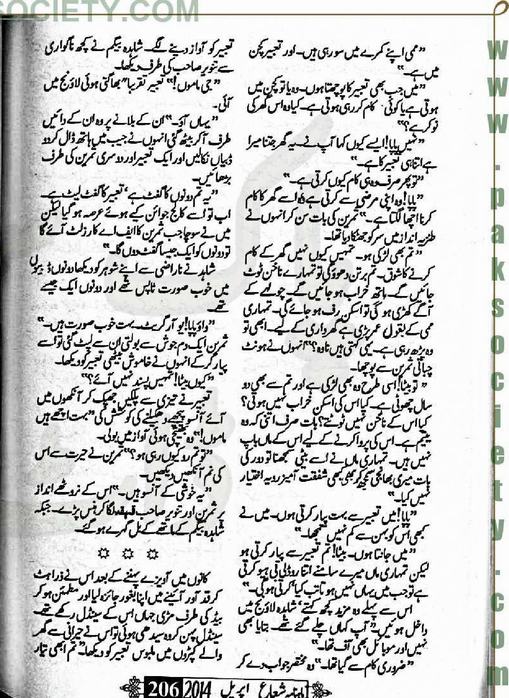 SOCIETY.COM
"ممی اپنے کمرے میں سو رہی ہیں۔ اور تعبیر کچن
میں ہے۔"
"میں جب بھی تعبیر کا پوچھتا ہوں۔ وہ یا تو کچن میں
ہوتی ہے یا کوئی کام کر رہی ہوتی ہے۔ کیا وہ اس گھر کی
نوکر ہے؟"
"نہیں پاپا! ایسے کیوں کہا آپ نے۔ یہ گھر جتنا میرا
ہے اتنا ہی تعبیر کا ہے۔"
"تو پھر صرف وہ ہی کام کیوں کرتی ہے۔"
"پاپا! وہ اپنی مرضی سے کرتی ہے اسے گھر کا کام
کرنا اچھا لگتا ہے۔" ثمرین کی بات سن کر انہوں نے
طنزیہ انداز میں سر کو جھٹکا دیا تھا۔
"تم بھی لڑکی ہو۔ تمہیں کیوں نہیں گھر کے کام
کرنے کا شوق۔ تم برتن دھوؤ گی تو تمہارے ناخن ٹوٹ
جائیں گے۔ ہاتھ خراب ہو جائیں گے۔ چولہے کے
آگے کھڑی ہو گی تو اسکن رف ہو جائے گی۔ تمہاری
ممی کے بقول عمر پڑی ہے گھر داری کے لیے۔ ابھی تو
وہ پڑھ رہی ہے۔ یہی کہتی ہیں نا وہ؟" انہوں نے ہونٹ
چباتی ثمرین سے پوچھا۔
"تو بیٹا! اسی طرح وہ بھی لڑکی ہے اور تم سے بھی دو
سال چھوٹی ہے۔ کیا اس کی اسکن خراب نہیں ہوتی؟
کیا اس کے ناخن نہیں ٹوٹتے؟ بات صرف اتنی کہ وہ
یتیم ہے۔ اس کی پروا کرنے کے لیے اس کے ماں باپ
نہیں ہیں۔ تمہاری ماں نے اسے بیٹی سمجھنا تو دور کی
بات میری بھانجی سمجھ کر بھی کبھی شفقت آمیز رویہ اختیار
نہیں کیا۔"
"پاپا! میں تعبیر سے بہت پیار کرتی ہوں۔ میں نے
کبھی اس کو بہن سے کم نہیں سمجھا۔"
"میں جانتا ہوں۔ بیٹا! تم تعبیر سے پیار کرتی ہو
لیکن تمہاری ماں میرے سامنے اتنا روڈلی بی ہیو کرتی
ہے تو جب میں یہاں نہیں ہوتا تب کیا کرتی ہو گی۔"
اس سے پہلے وہ مزید کچھ کہتے شاہدہ لاؤنج میں
داخل ہوئیں۔ "آپ کہاں چلے گئے تھے۔ بتایا بھی
نہیں اور موبائل بھی آف تھا۔"
"ضروری کام سے گیا تھا۔" وہ مختصر جواب دے کر
تعبیر کو آواز دینے لگے۔ شاہدہ بیگم نے کچھ ناگواری
سے تنویر صاحب کی طرف دیکھا۔
"جی ماموں!" تعبیر تقریباً بھاگتی ہوئی لاؤنج میں
آئی۔
"یہاں آؤ۔" ان کے بلانے پر وہ ان کے دائیں
طرف آ کر بیٹھ گئی انہوں نے جیب میں ہاتھ ڈال کر دو
ڈبیاں نکالیں اور ایک تعبیر اور دوسری ثمرین کی طرف
بڑھائیں۔
"یہ تم دونوں کا گفٹ ہے، تعبیر کا گفٹ لیٹ ہے۔
اب تو اسے کالج جوائن کیے ہوئے عرصہ ہو گیا لیکن
میں نے سوچا جب ثمرین کا ایف اے کا رزلٹ آئے گا
تو دونوں کو ایک جیسا گفٹ دوں گا۔"
شاہدہ نے ناراضی سے اپنے شوہر کو دیکھا دونوں ڈبیوں
میں خوب صورت ٹاپس تھے اور دونوں ایک جیسے
تھے۔
"واؤ پاپا! یو آر گریٹ۔ بہت خوب صورت ہیں۔"
ثمرین ایک دم جوش سے بولتی ان سے لپٹ گئی تو اسے
پیار کر کے انہوں نے خاموش بیٹھی تعبیر کو دیکھا۔
"کیوں بیٹا! تمہیں پسند نہیں آئے؟"
تعبیر نے تیزی سے پلکیں جھپک کر آنکھوں میں
آئے آنسو پیچھے دھکیلنے کی کوشش کی "بہت اچھے ہیں
ماموں!" وہ بھیگی ہوئی آواز میں بولی۔
"تو تم رو کیوں رہی ہو؟" ثمرین نے حیرت سے اس
کی نم آنکھیں دیکھیں۔
"یہ خوشی کے آنسو ہیں۔" اس کے نروٹھے انداز
پر ثمرین اور تنویر صاحب قہقہہ لگا کر ہنس پڑے۔ جبکہ
شاہدہ بیگم کے ماتھے کے بل گہرے ہو گئے۔
☼ ☼ ☼
کانوں میں آویزے پہننے کے بعد اس نے ذرا ہٹ
کر قد آور آئینے میں اپنا بغور جائزہ لیا اور مطمئن ہو کر
بیڈ کی طرف مڑی جہاں اس کے سینڈل رکھے تھے۔
سینڈل پہن کر وہ سیدھی ہوئی تو اس نے حیرانی سے گھر
کے کپڑوں میں ملبوس تعبیر کو دیکھا "تم ابھی تیار
ماہنامہ شعاع اپریل 2014 206
www.paksociety.com